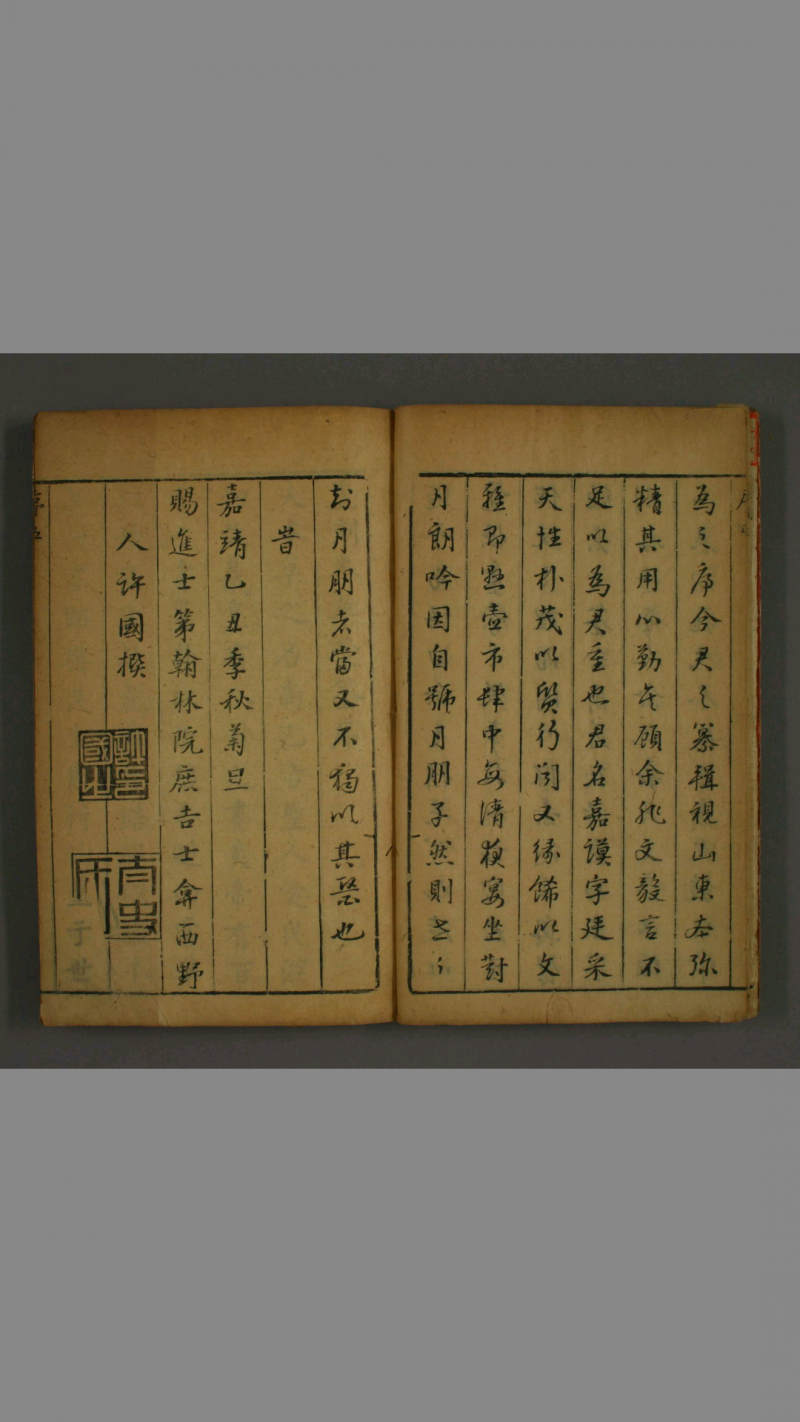 為之序今君之纂輯視山東本弥
精其用心勤矣顧余非文殼言不
足以為君重也君名嘉謨字廷采
天性朴茂以質行聞又緣餙以文
雅即懸壺市肆中每清夜宴坐對
月朗吟因自號月朋子然則世之
知月朋者當又不獨以其醫也
昔
嘉靖乙丑季秋菊旦
賜進士第翰林院庶吉士歙西野
人許國撰
許國之印
太史氏